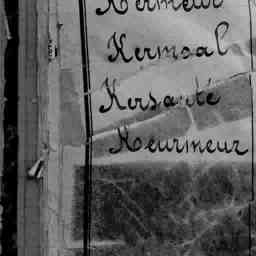 Kermeur
Kermoal
Kersanté
Keurmeur